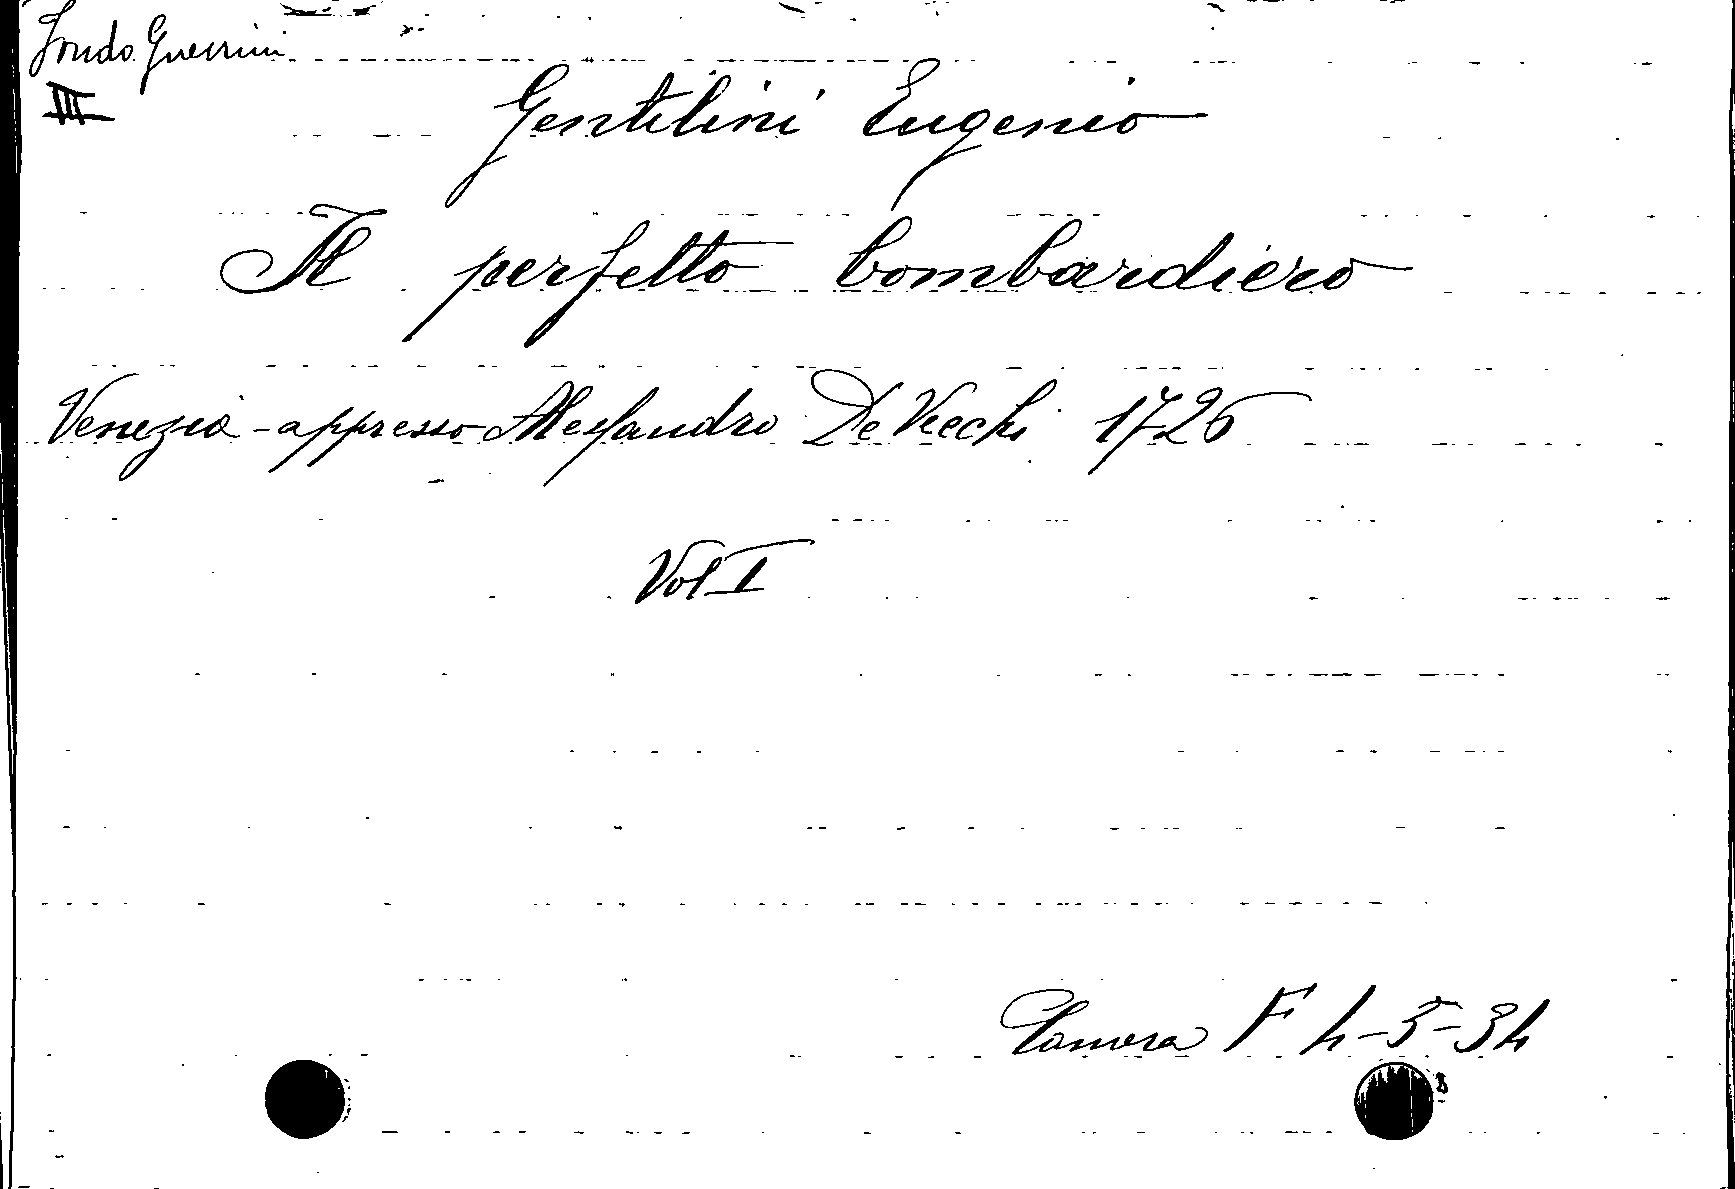 Fondo Guerrini
III
Gentilini Eugenio
Il perfetto bombardiero
Venezia - appresso Alessandro De Vecchi 1726
Vol I
Camera F 4-5-34